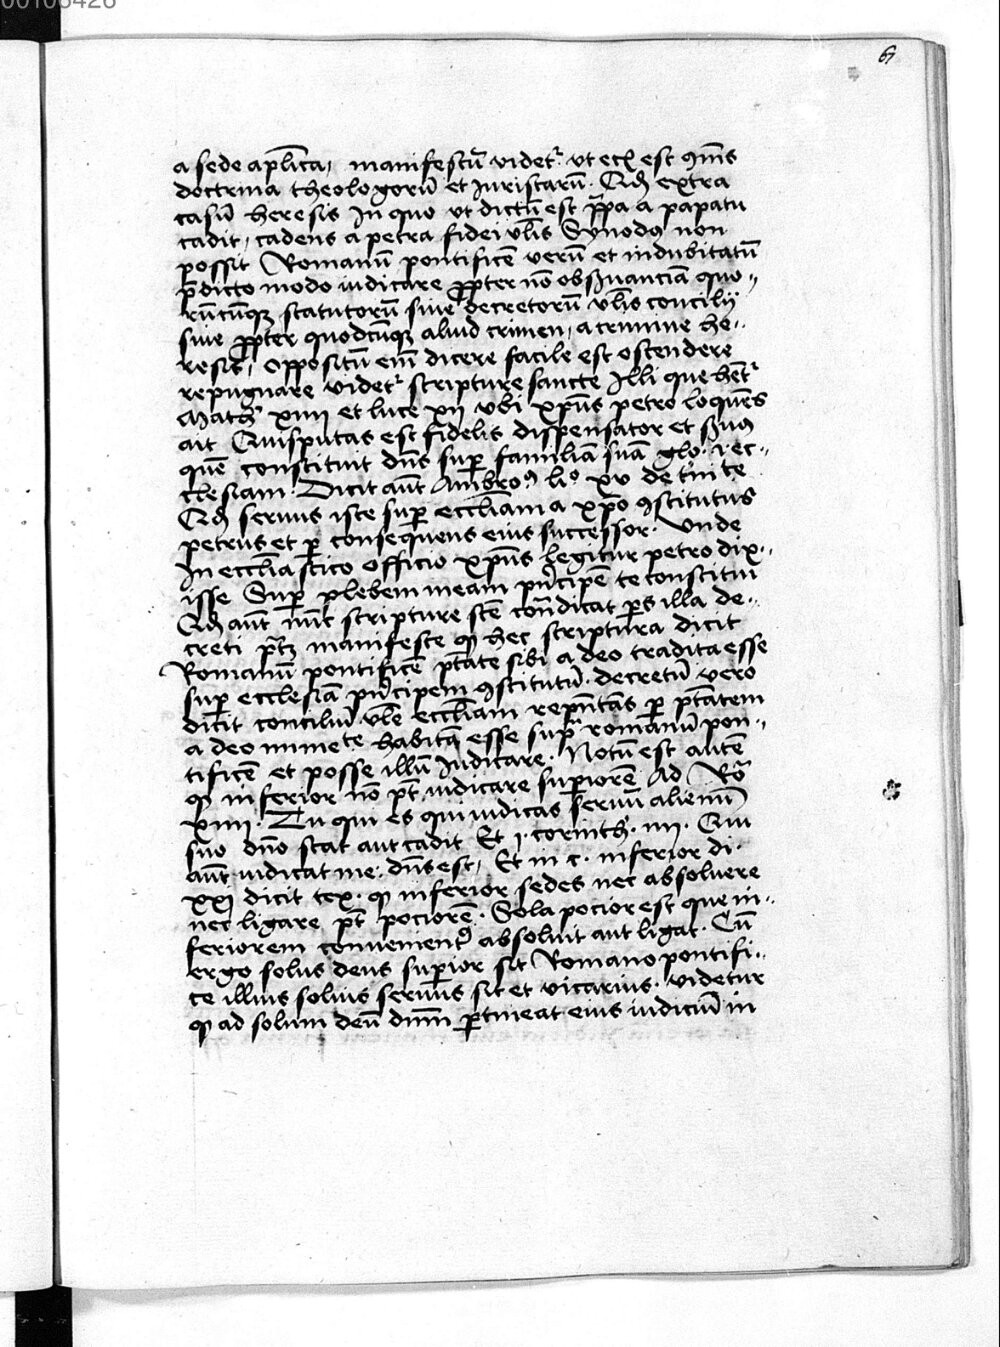 00106426
67
a sede aplica, manifestū videtʳ ut etā est ꝯīs
doctrina theologorū et Juristarū. Qđ extra
casū heresis In quo ut dictū est papa a papatu
cadit, cadens a petra fidei vlis Synodꝰ non
possit Romanū pontificē verū et indubitatū
p̄dicto modo iudicare ꝓpter nō obſꝫuanciā quo„
rūcūqꝫ statutorū sive decretorū vlis concilij
sive ꝓpter quodcūqꝫ aliud crimen, a crimine he„
resis, Oppositū em̄ dicere facile est ostendere
repugnare videtʳ scripture sancte Illi que hetʳ
Math xxiiii et luce xij ubi xp̄us petro loquēs
ait Quisputas est fidelis dispensator et ſꝫuꝰ
quē constituit dn̄s suꝑ familiā suā glo. i ec„
clesiam. Dicit aūt Ambroꝰ li° xv de
Qđ servus iste suꝑ eccliam a xp̄o ꝯstitutus
petrus et ꝑ consequens eius successor. Unde
In ecclīastico officio xp̄us legitur petro dix„
isse Suꝑ plebem meam pn̄cipē te constitui
Qđ aūt scripture scē cōtdicat ps illa de„
creti ptꝫ manifeste qꝫ hec scriptura dicit
Romanū pontificē ptāte sibi a deo tradita esse
suꝑ ecclesiā pn̄cipem ꝯstitutū. decretū vero
dicit conciliū vlē eccliam repn̄tās ꝑ ptātem
a deo inmeˡᵉ habitā esse supʳ romanū pon„
tificē et posse illū Judicare. Notū est autē
qꝫ inferior nō pt̄ iudicare suꝑiorē Ad Ro
xiiii. Tu qui es qui iudicas servū alienū
suo dn̄o stat aut cadit Et j. corinth. iiii. Qui
aūt iudicat me. dn̄s est, Et in c. inferior di.
xxj dicit tex. qꝫ inferior sedes nec absolvere
nec ligare pt̄ pociorē. Sola pocior est que in„
feriorem convenientʳ absolvit aut ligat. Cū
ergo solus deus suꝑior sit Romano pontifi„
ce illius solius servus sit et vicarius. videtur
qꝫ ad solum deū dnm̄ ꝑtineat eius iudiciū in